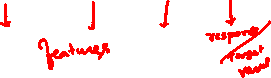 features
response
target